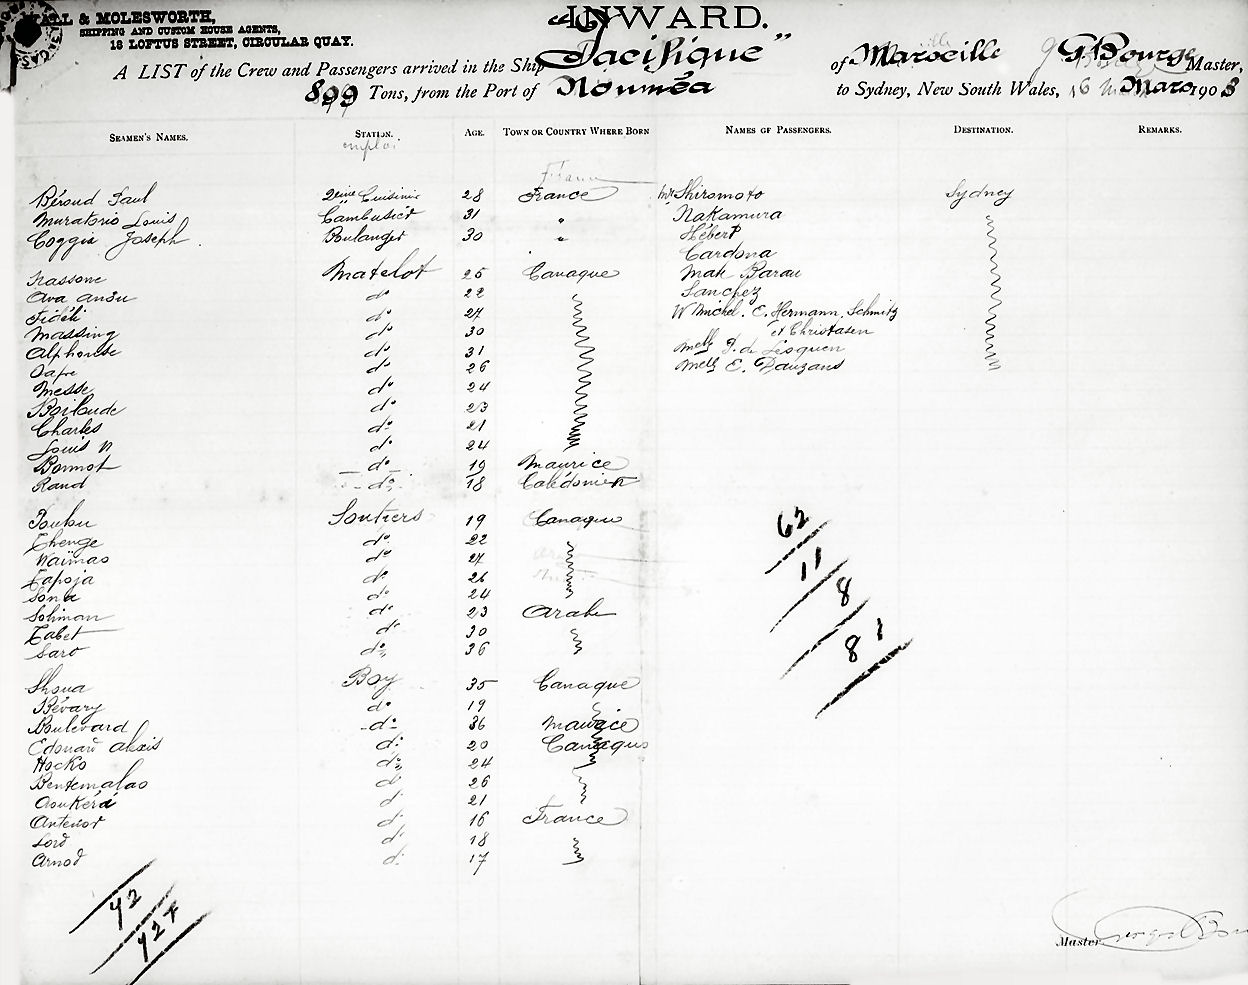 INWARD.
& MOLESWORTH,
SHIPPING AND CUSTOM HOUSE AGENTS,
18 LOFTUS STREET, CIRCULAR QUAY.
A LIST of the Crew and Passengers arrived in the Ship "Pacifique" of Marseille G Bourge Master,
899 Tons, from the Port of Nouméa to Sydney, New South Wales, 16 Mars 1903
SEAMEN'S NAMES. STATION. AGE. TOWN OR COUNTRY WHERE BORN NAMES OF PASSENGERS. DESTINATION. REMARKS.
emploi
Béroud Paul 2eme Cuisinie 28 France Mr Shiromoto Sydney
Muratorio Louis Cambusier 31 " Nakamura
Coggia Joseph Boulanger 30 " Hébert
Cardona
Nassone Matelot 25 Canaque Mah Barau
Ava ansu do 22 Sanchez
Fidéli do 27 W Michel. E. Hermann. Schmitz
Massing do 30 et Christasen
Alphonse do 31 Melle J. de Lesquen
Oape do 26 Melle E. Dauzans
Messe do 24
do 23
Charles do 21
Louis N do 24
Bonnot do 19 Maurice
Rand do 18 Calédonien
Poubu Soutiers 19 Canaque
Thenge do 22
Waïmao do 27
Tapoja do 26
Sona do 24
Soliman do 23 Arabe
Tabet do 30
Saro do 36
Shoua Boy 35 Canaque
Bévary do 19
Boulevard do 36 Maurice
Edouard Alexis do 20 Canaque
Hocko do 24
Bentemalao d 26
Aoukéra d 21
Antenor d 16 France
Lord d 18
Arnod d 17
62
11
8
81
42
424
Master